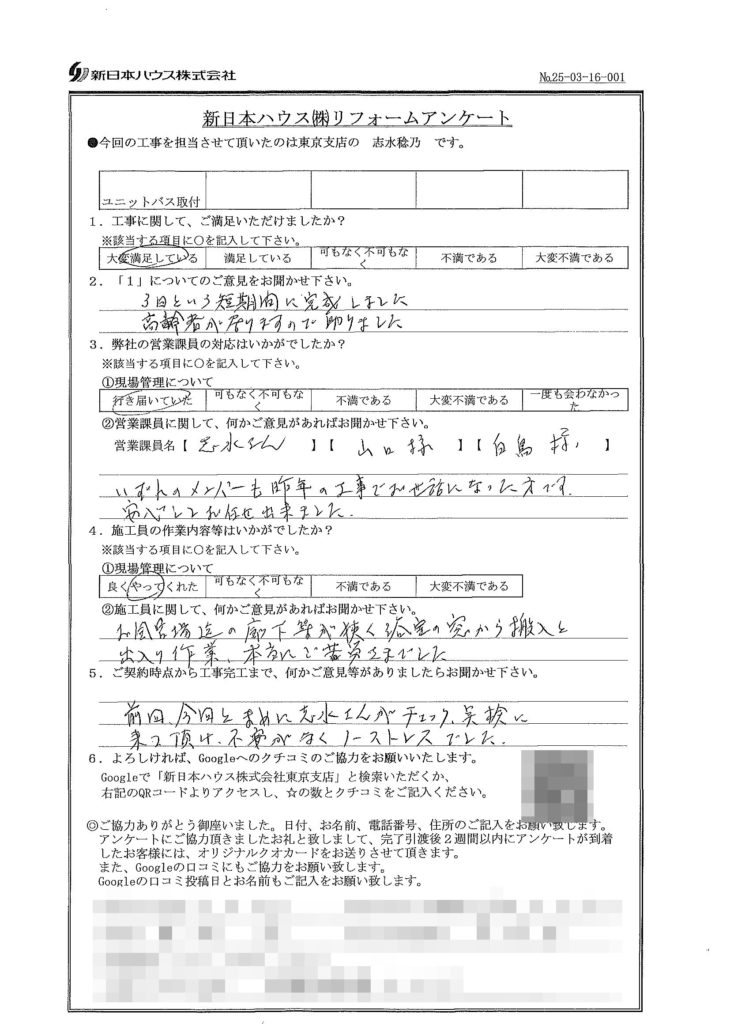 新日本ハウス株式会社
№25-03-16-001
新日本ハウス㈱リフォームアンケート
●今回の工事を担当させて頂いたのは東京支店の 志水稔乃 です。
ユニットバス取付
1．工事に関して、ご満足いただけましたか？
※該当する項目に○を記入して下さい。
大変満足している 満足している 可もなく不可もなく 不満である 大変不満である
2．「1」についてのご意見をお聞かせ下さい。
3日という短期間に完成しました
高齢者が居りますので助りました
3．弊社の営業課員の対応はいかがでしたか？
※該当する項目に○を記入して下さい。
①現場管理について
行き届いていた 可もなく不可もなく 不満である 大変不満である 一度も会わなかった
②営業課員に関して、何かご意見があればお聞かせ下さい。
営業課員名【 志水さん 】【 山口様 】【 白鳥様 】
いずれのメンバーも昨年の工事でお世話になった方です.
安心してお任せ出来ました.
4．施工員の作業内容等はいかがでしたか？
※該当する項目に○を記入して下さい。
①現場管理について
良くやってくれた 可もなく不可もなく 不満である 大変不満である
②施工員に関して、何かご意見があればお聞かせ下さい。
お風呂場迄の廊下等が狭く浴室の窓から搬入と
出入り作業、本当にご苦労さまでした
5．ご契約時点から工事完工まで、何かご意見等がありましたらお聞かせ下さい。
前回、今回とまめに志水さんがチェック、点検に
来て頂け、不安がなくノーストレスでした.
6．よろしければ、Googleへのクチコミのご協力をお願いいたします。
Googleで「新日本ハウス株式会社東京支店」と検索いただくか、
右記のQRコードよりアクセスし、☆の数とクチコミをご記入ください。
◎ご協力ありがとう御座いました。日付、お名前、電話番号、住所のご記入をお願い致します。
アンケートにご協力頂きましたお礼と致しまして、完了引渡後２週間以内にアンケートが到着
したお客様には、オリジナルクオカードをお送りさせて頂きます。
また、Googleの口コミにもご協力をお願い致します。
Googleの口コミ投稿日とお名前もご記入をお願い致します。